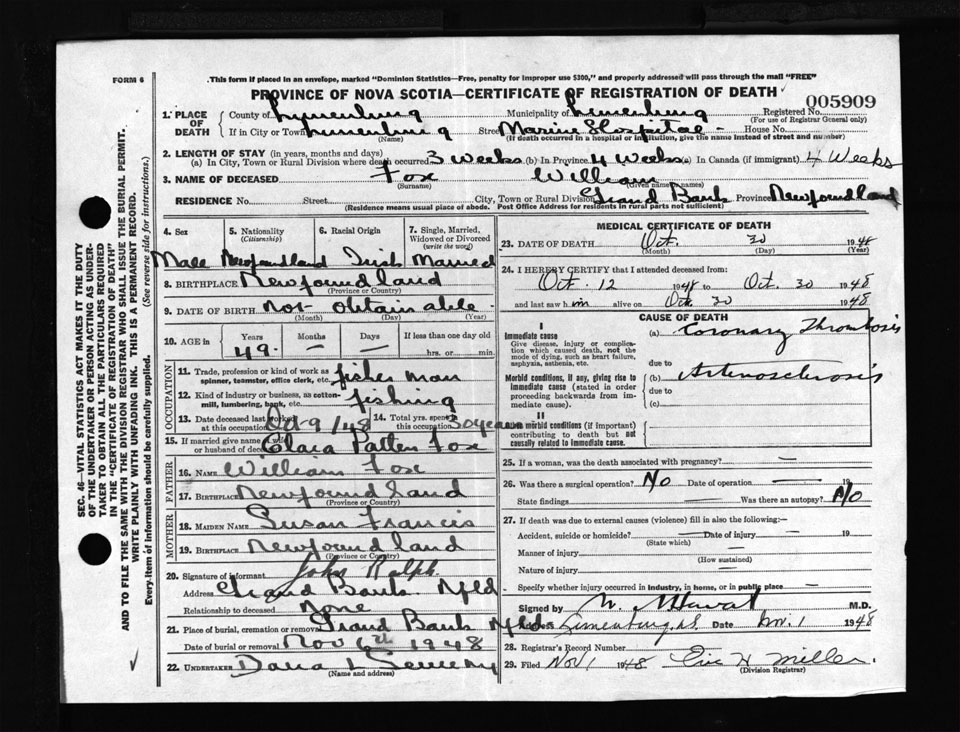 FORM 6
This form if placed in an envelope, marked "Dominion Statistics—Free, penalty for improper use $300," and properly addressed will pass through the mail "FREE"
PROVINCE OF NOVA SCOTIA—CERTIFICATE OF REGISTRATION OF DEATH
005909
1. PLACE OF DEATH
County of Lunenburg Municipality of Lunenburg Registered No.
(For use of Registrar General only)
If in City or Town Lunenburg Street Marine Hospital - House No.
(Name) (If death occurred in a hospital or institution, give the name instead of street and number)
2. LENGTH OF STAY (in years, months and days)
(a) In City, Town or Rural Division where death occurred 3 Weeks (b) In Province 4 Weeks (c) In Canada (if immigrant) 4 Weeks
3. NAME OF DECEASED Fox William
(Surname) (Given name or names)
RESIDENCE No. Street City, Town or Rural Division Grand Bank Province Newfoundland
(Residence means usual place of abode. Post Office Address for residents in rural parts not sufficient)
4. Sex 5. Nationality (Citizenship) 6. Racial Origin 7. Single, Married, Widowed or Divorced (write the word)
Male Newfoundland Irish Married
8. BIRTHPLACE Newfoundland
(Province or Country)
9. DATE OF BIRTH not obtainable
(Month) (Day) (Year)
10. AGE in Years Months Days If less than one day
49 — — hrs. or min.
OCCUPATION
11. Trade, profession or kind of work as spinner, teamster, office clerk, etc. fisher man
12. Kind of industry or business, as cotton-mill, lumbering, bank, etc. fishing
13. Date deceased last worked at this occupation Oct 9/48 14. Total yrs. spent in this occupation 30 years
15. If married give name of wife or husband of deceased Clara Patten Fox
FATHER
16. NAME William Fox
17. BIRTHPLACE Newfoundland
(Province or Country)
MOTHER
18. MAIDEN NAME Susan Francis
19. BIRTHPLACE Newfoundland
(Province or Country)
20. Signature of informant John Ralph
Address Grand Bank Nfld
Relationship to deceased None
21. Place of burial, cremation or removal Grand Bank Nfld
Date of burial or removal Nov 6th 1948
22. UNDERTAKER Dana L Sweeny
(Name and address)
MEDICAL CERTIFICATE OF DEATH
23. DATE OF DEATH Oct. 30 1948
(Month) (Day) (Year)
24. I HEREBY CERTIFY that I attended deceased from:
Oct. 12 1948 to Oct. 30 1948
and last saw him alive on Oct. 30 1948
CAUSE OF DEATH
I
Immediate cause (a) Coronary Thrombosis
Give disease, injury or complication which caused death, not the mode of dying, such as heart failure, asphyxia, asthenia, etc.
due to
Morbid conditions, if any, giving rise to immediate cause (stated in order proceeding backwards from immediate cause). (b) Arteriosclerosis
due to
(c)
II
Other morbid conditions (if important) contributing to death but not causally related to immediate cause.
25. If a woman, was the death associated with pregnancy? —
26. Was there a surgical operation? No Date of operation — 19
State findings Was there an autopsy? No
27. If death was due to external causes (violence) fill in also the following:—
Accident, suicide or homicide? — Date of injury — 19
(State which)
Manner of injury —
(How sustained)
Nature of injury —
Specify whether injury occurred in industry, in home, or in public place —
Signed by M.D.
Address Lunenburg, N.S. Date Nov. 1 1948
28. Registrar's Record Number
29. Filed Nov 1 1948 Eric H Miller.
(Division Registrar)
SEC. 46—VITAL STATISTICS ACT MAKES IT THE DUTY
OF THE UNDERTAKER OR PERSON ACTING AS UNDER-
TAKER TO OBTAIN ALL THE PARTICULARS REQUIRED
IN THE "CERTIFICATE OF REGISTRATION OF DEATH"
AND TO FILE THE SAME WITH THE DIVISION REGISTRAR WHO SHALL ISSUE THE BURIAL PERMIT.
WRITE PLAINLY WITH UNFADING INK. THIS IS A PERMANENT RECORD.
Every item of information should be carefully supplied. (See reverse side for instructions.)